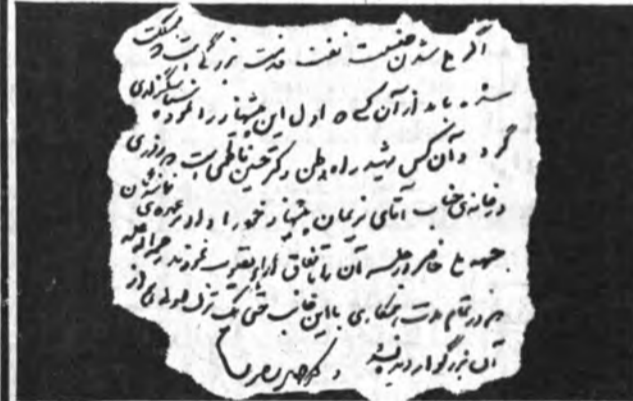 اگر ملی شدن صنعت نفت خدمت بزرگی است که به مملکت
شده باید از آن کسی که اول این پیشنهاد را نمود سپاسگزاری
کرد و آن کس شهید راه وطن دکتر حسین فاطمی است که روزی
در خانه‌ی جناب آقای نریمان پیشنهاد خود را داد و عده‌ی نمایندگان
جبهه ملی حاضر در جلسه آن را باتفاق آراء تصویب نمودند رحمة الله علیه
که در تمام مدت همکاری با این جانب حتی یک ترک اولی هم از
آن بزرگوار دیده نشد دکتر محمد مصدق